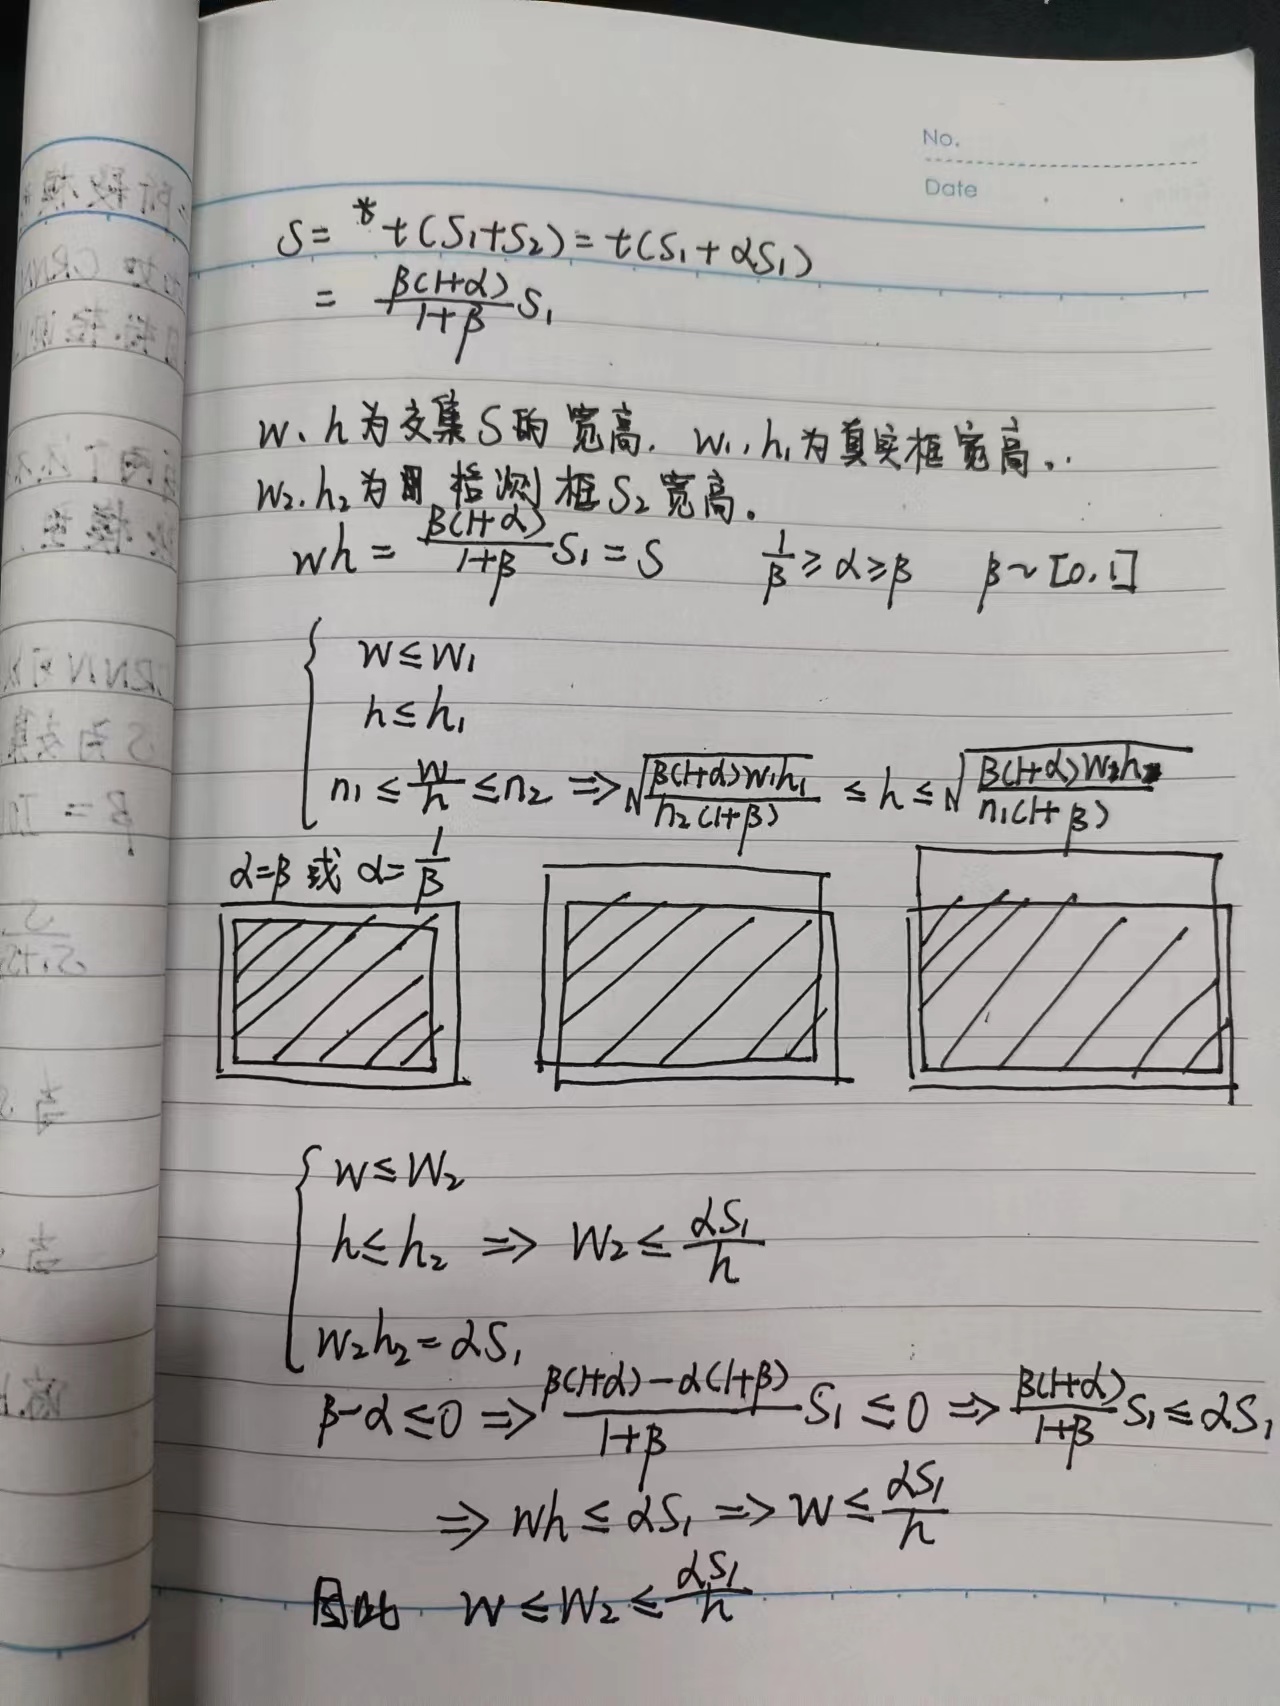 No.
Date
S = t(S₁+S₂) = t(S₁+αS₁)
= β(1+α)/(1+β) S₁
w、h为交集S的宽高. w₁,h₁为真实框宽高.
w₂.h₂为检测框S₂宽高.
wh = β(1+α)/(1+β) S₁ = S 1/β ≥ α ≥ β β~[0,1]
w ≤ w₁
h ≤ h₁
n₁ ≤ w/h ≤ n₂ ⇒ √(β(1+α)w₁h₁/(n₂(1+β))) ≤ h ≤ √(β(1+α)w₂h₂/(n₁(1+β)))
α=β 或 α=1/β
w ≤ w₂
h ≤ h₂ ⇒ w₂ ≤ αS₁/h
w₂h₂ = αS₁
β-α ≤ 0 ⇒ (β(1+α)-α(1+β))/(1+β) S₁ ≤ 0 ⇒ β(1+α)/(1+β) S₁ ≤ αS₁
⇒ wh ≤ αS₁ ⇒ w ≤ αS₁/h
因此 w ≤ w₂ ≤ αS₁/h